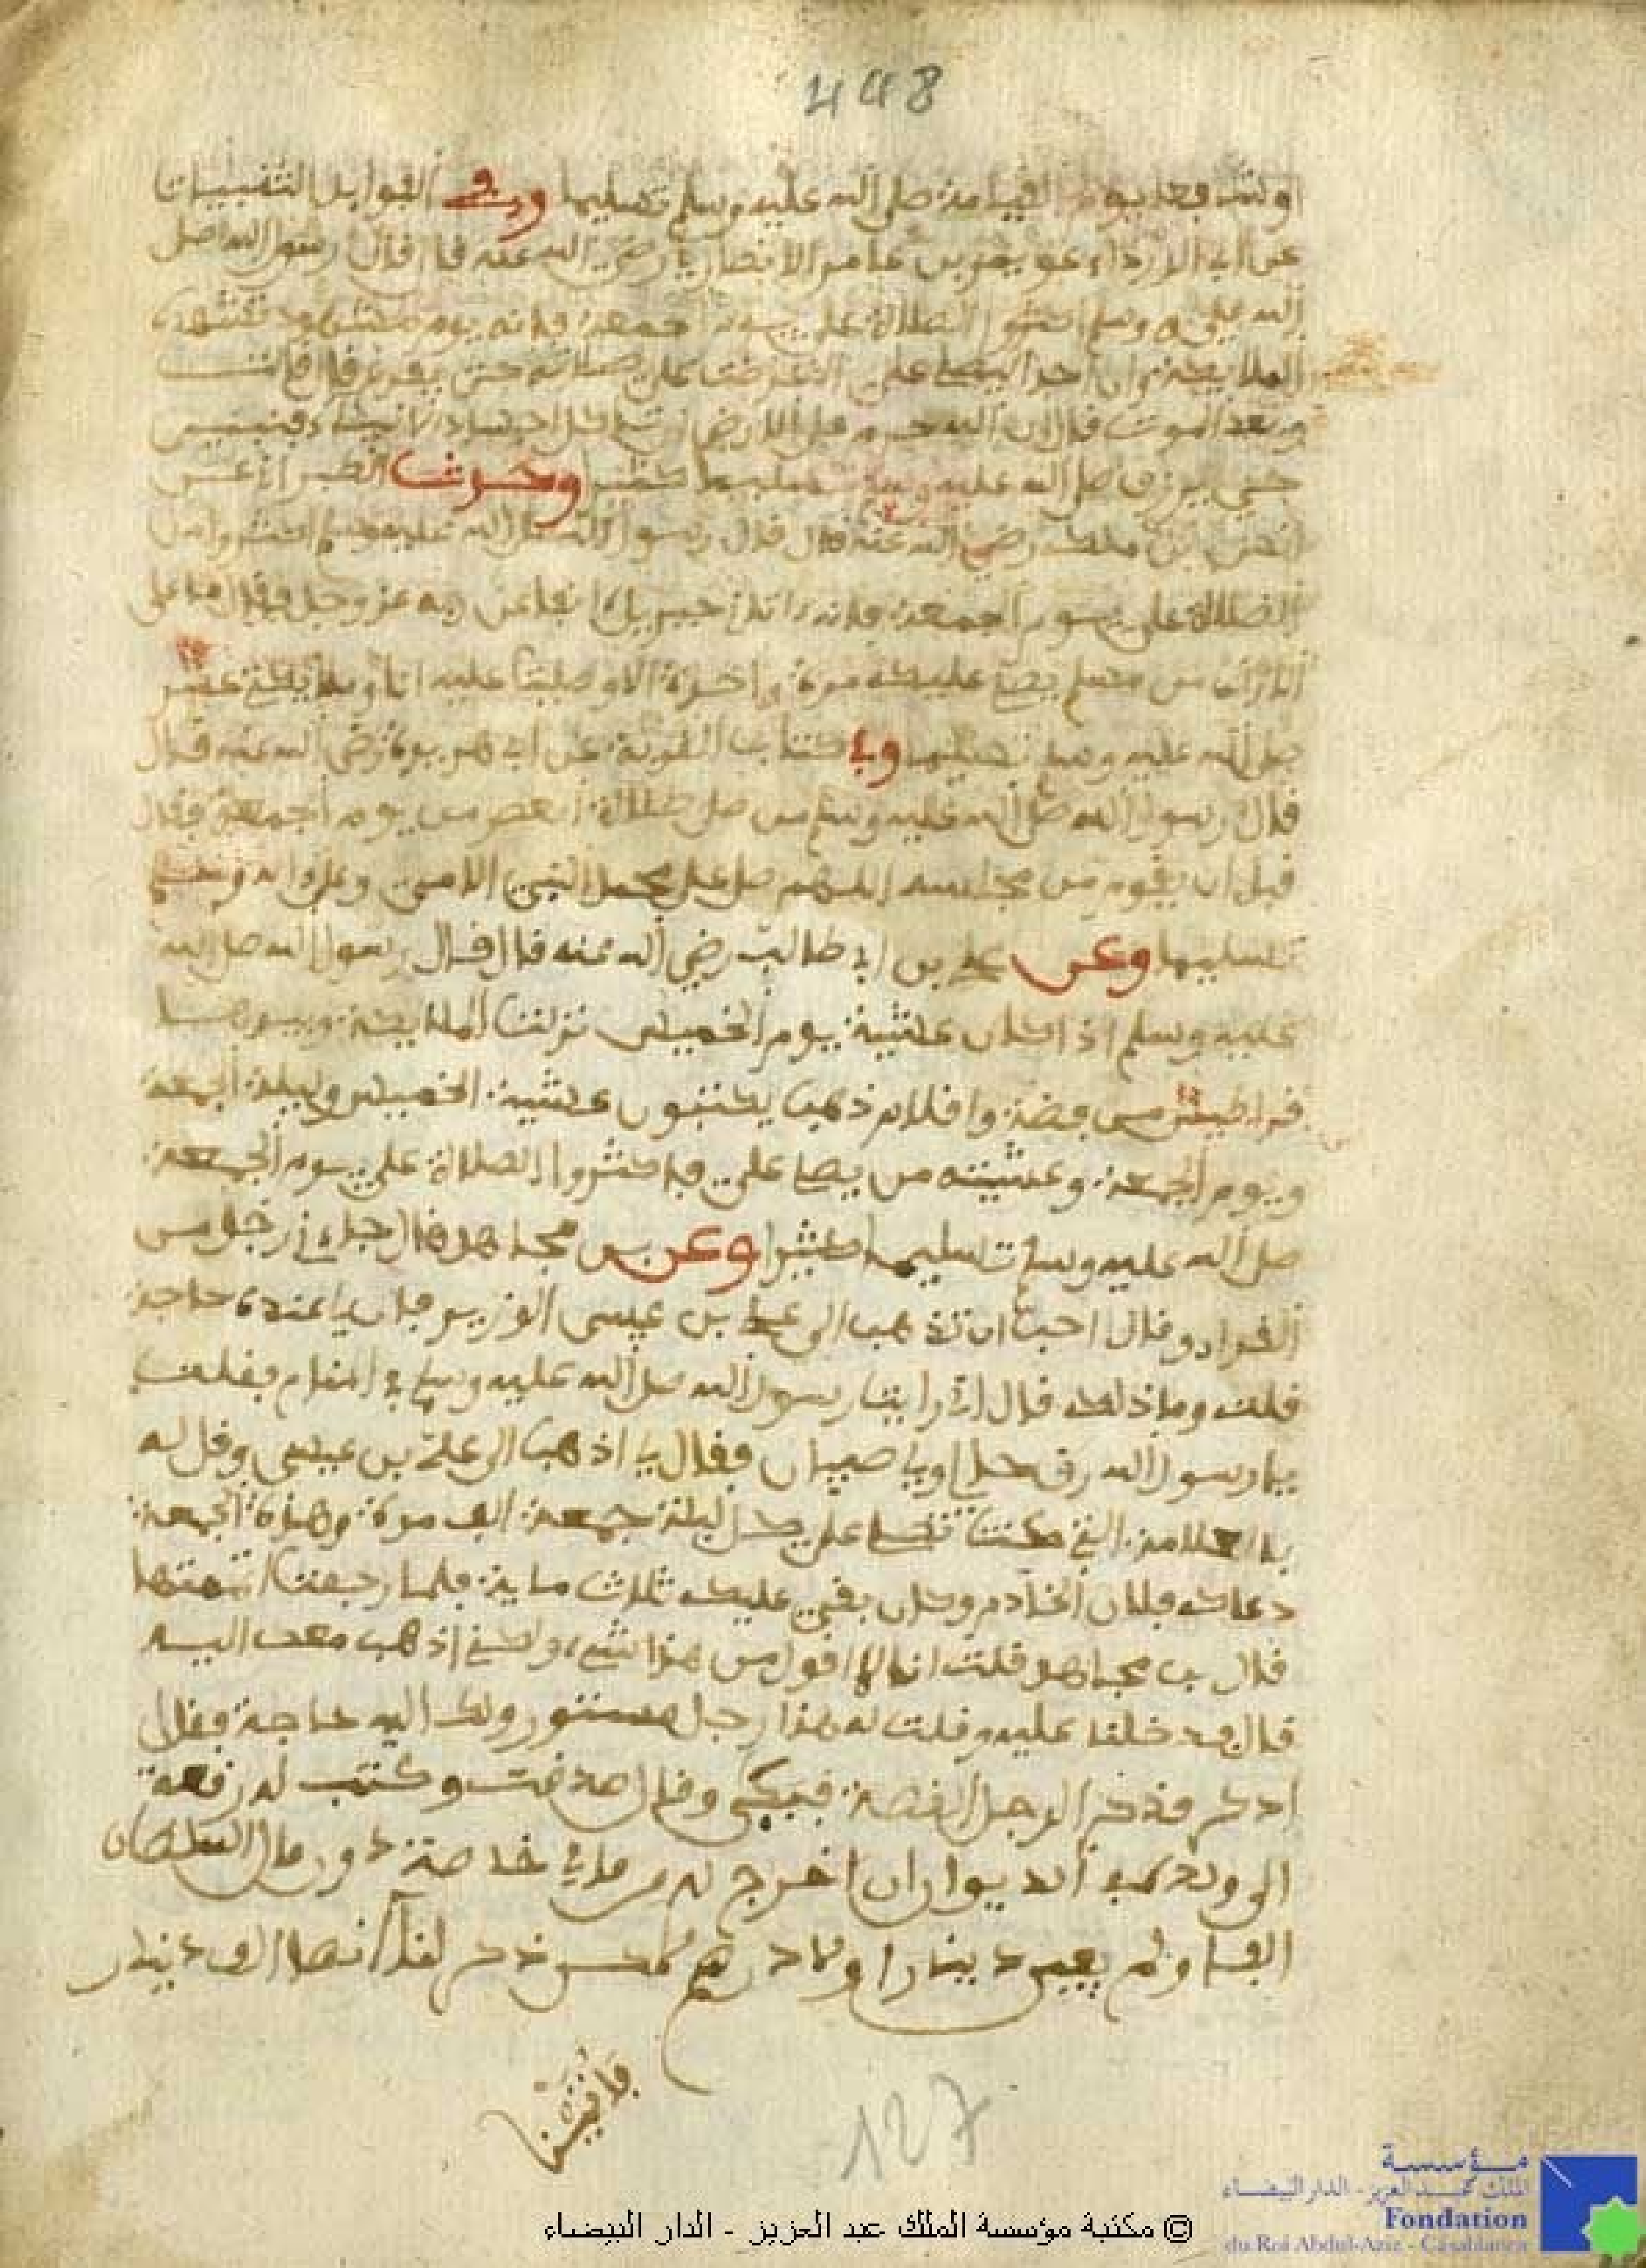 448
او شفيعا يوم القيامة صلى الله عليه وسلم تسليما وفي الفوايد الثقفيات
عن ابي الدرداء عويمر بن عامر الانصاري رضي الله عنه قال قال رسول الله صلى
الله عليه وسلم اكثروا الصلاة علي يوم الجمعة فانه يوم مشهود تشهده
الملايكة وان احدا ليصلي علي الا عرضت علي صلاته حتى يفرغ قال قلت
وبعد الموت قال ان الله حرم على الارض ان تاكل اجساد الانبياء فنبي
حي يرزق صلى الله عليه وسلم تسليما كثيرا وحدث الطبراني عن
انس بن ملك رضي الله عنه قال قال رسول الله صلى الله عليه وسلم اكثروا من
الصلاة علي يوم الجمعة فانه اتاني جبريل انفا عن ربه عز وجل فقال ما على
الارض من مسلم يصلي عليك مرة واحدة الا وصليت عليه انا وملايكتي عشر
صلى الله عليه وسلم تسليما وفي كتاب القربة عن ابي هريرة رضي الله عنه قال
قال رسول الله صلى الله عليه وسلم من صلى صلاة العصر من يوم الجمعة فقال
قبل ان يقوم من مجلسه اللهم صل على محمد النبي الامي وعلى اله وسلم
تسليما وعن علي بن ابي طالب رضي الله عنه قال قال رسول الله صلى الله
عليه وسلم اذا كان عشية يوم الخميس نزلت الملايكة وبيدها
قراطيس من فضة واقلام ذهب يكتبون عشية الخميس وليلة الجمعة
ويوم الجمعة وعشيته من يصلي علي فاكثروا الصلاة علي يوم الجمعة
صلى الله عليه وسلم تسليما كثيرا وعن بن مجاهد قال جاءني رجل من
القراء وقال احب ان تذهب الى علي بن عيسى الوزير فان لي عنده حاجة
فلت وما ذلك قال اني رايت رسول الله صلى الله عليه وسلم في المنام فقلت
يا رسول الله رق حالي ولي صبيان فقال لي اذهب الى علي بن عيسى وقل له
بالعلامة التي كنت تصلي علي كل ليلة جمعة الف مرة وهذه الجمعة
دعاك فلان الخادم وكان بقي عليك ثلاث ماية فلما رجعت اتممتها
قال بن مجاهد قلت انا لا اقول من هذا شيء ولكني اذهب معك اليه
قال فدخلنا عليه وقلت له هذا رجل مستور وله اليك حاجة فقال
اذكر فذكر الرجل القصة فبكى وقال صدقت وكتب له رقعة
الى وكيله الديوان اخرج له من مالي خاصة دون مال السلطان
الفا ولم يعين دينارا ولا درهم فذكر لنا انها الف دينار
فانثنى
127
© مكتبة مؤسسة الملك عبد العزيز - الدار البيضاء
مؤسسة
الملك عبد العزيز - الدار البيضاء
Fondation
du Roi Abdul-Aziz - Casablanca